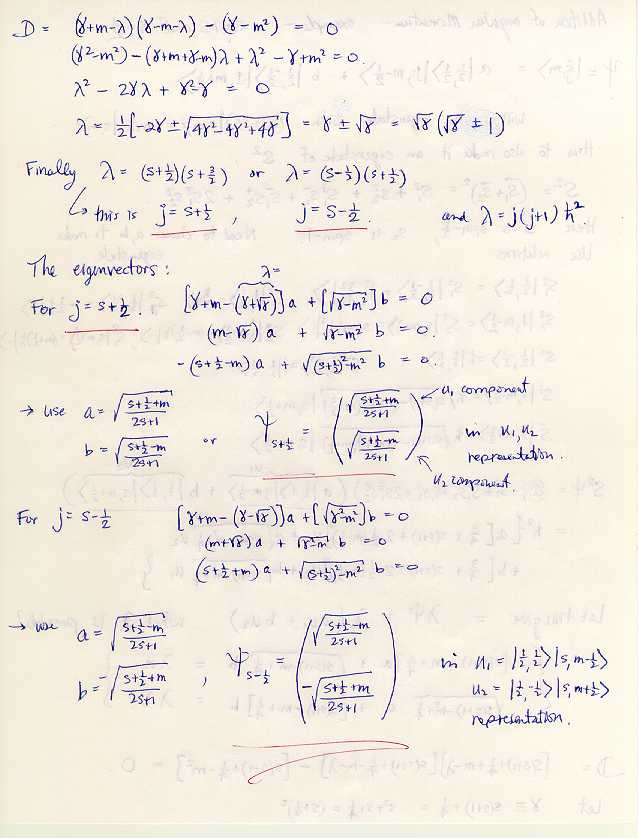 D = (γ+m-λ)(γ-m-λ) - (γ-m²) = 0
(γ²-m²) - (γ+m+γ-m)λ + λ² - γ+m² = 0.
λ² - 2γλ + γ²-γ = 0
λ = ½[-2γ ± √4γ²-4γ²+4γ] = γ ± √γ = √γ(√γ ± 1)
Finally λ = (s+½)(s+3/2) or λ = (s-½)(s+½)
↳ this is j = s+½ , j = s-½ . and λ = j(j+1) ħ²
The eigenvectors : λ=
For j = s+½ . [γ+m-(γ+√γ)]a + [√γ-m²]b = 0
(m-√γ) a + √γ-m² b = 0.
-(s+½-m) a + √(s+½)²-m² b = 0.
→ use a = √(s+½+m)/(2s+1) or ψ s+½ = ( √(s+½+m)/(2s+1) ← u₁ component
b = √(s+½-m)/(2s+1) √(s+½-m)/(2s+1) ) in u₁,u₂ representation.
u₂ component.
For j = s-½ [γ+m-(γ-√γ)]a + [√γ²m²]b = 0
(m+√γ) a + √γ²m² b = 0
(s+½+m) a + √(s+½)²-m² b = 0
→ use a = √(s+½-m)/(2s+1) , ψ s-½ = ( √(s+½-m)/(2s+1) in u₁ = |½,½>|s,m-½>
b = -√(s+½+m)/(2s+1) -√(s+½+m)/(2s+1) ) u₂ = |½,-½>|s,m+½>
representation.